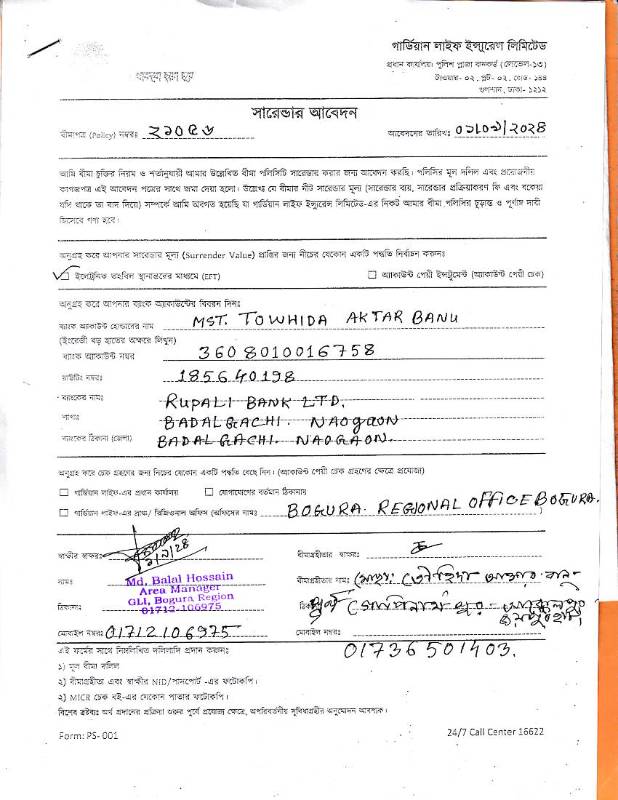 গার্ডিয়ান লাইফ ইন্স্যুরেন্স লিমিটেড
প্রধান কার্যালয়: পুলিশ প্লাজা কনকর্ড (লেভেল-১৩)
টাওয়ার- ০২, প্লট- ০২, রোড- ১৪৪
গুলশান, ঢাকা- ১২১২
সারেন্ডার আবেদন
বীমাপত্র (Policy) নম্বরঃ ২১০৫৬ আবেদনের তারিখঃ ০১/০১/২০২৪
আমি বীমা চুক্তির নিয়ম ও শর্তানুযায়ী আমার উল্লেখিত বীমা পলিসিটি সারেন্ডার করার জন্য আবেদন করছি। পলিসির মূল দলিল এবং প্রয়োজনীয়
কাগজপত্র এই আবেদন পত্রের সাথে জমা দেয়া হলো। উল্লেখ্য যে বীমার নীট সারেন্ডার মূল্য (সারেন্ডার ব্যয়, সারেন্ডার প্রক্রিয়াকরণ ফি এবং বকেয়া
যদি থাকে তা বাদ দিয়ে) সম্পর্কে আমি অবগত হয়েছি যা গার্ডিয়ান লাইফ ইন্স্যুরেন্স লিমিটেড-এর নিকট আমার বীমা পলিসির চূড়ান্ত ও পূর্ণাঙ্গ দাবী
হিসেবে গণ্য হবে।
অনুগ্রহ করে আপনার সারেন্ডার মূল্য (Surrender Value) প্রাপ্তির জন্য নীচের যেকোন একটি পদ্ধতি নির্বাচন করুনঃ
ইলেট্রনিক তহবিল স্থানান্তরের মাধ্যমে (EFT) অ্যাকাউন্ট পেয়ী ইন্সট্রুমেন্ট (অ্যাকাউন্ট পেয়ী চেক)
অনুগ্রহ করে আপনার ব্যাংক অ্যাকাউন্টের বিবরন দিনঃ
ব্যাংক অ্যাকাউন্ট হোল্ডারের নাম MST. TOWHIDA AKTAR BANU
(ইংরেজী বড় হাতের অক্ষরে লিখুন)
ব্যাংক অ্যাকাউন্ট নম্বর 3608010016758
রাউটিং নম্বরঃ 185640198
ব্যাংকের নামঃ RUPALI BANK LTD.
শাখাঃ BADALGACHI. NAOGAON
ব্যাংকের ঠিকানা (জেলা) BADALGACHI. NAOGAON.
অনুগ্রহ করে চেক গ্রহণের জন্য নিচের যেকোন একটি পদ্ধতি বেছে নিন। (অ্যাকাউন্ট পেয়ী চেক গ্রহণের ক্ষেত্রে প্রযোজ্য)
গার্ডিয়ান লাইফ-এর প্রধান কার্যালয় যোগাযোগের বর্তমান ঠিকানায়
গার্ডিয়ান লাইফ-এর ব্রাঞ্চ/ রিজিওনাল অফিস (অফিসের নামঃ BOGURA. REGIONAL OFFICE BOGURA.
স্বাক্ষীর স্বাক্ষরঃ বীমাগ্রহীতার স্বাক্ষরঃ
নামঃ Md. Balal Hossain বীমাগ্রহীতার নামঃ মোছাঃ তৌহিদা আক্তার বানু
Area Manager
ঠিকানাঃ GLI, Bogura Region
01712-106975
মোবাইল নম্বরঃ 01712106975 মোবাইল নম্বরঃ
01736501403.
এই ফর্মের সাথে নিম্নলিখিত দলিলাদি প্রদান করুনঃ
১) মূল বীমা দলিল
২) বীমাগ্রহীতা এবং স্বাক্ষীর NID/পাসপোর্ট -এর ফটোকপি।
২) MICR চেক বই-এর যেকোন পাতার ফটোকপি।
বিশেষ দ্রষ্টব্যঃ অর্থ প্রদানের প্রক্রিয়া শুরুর পূর্বে প্রযোজ্য ক্ষেত্রে, অপরিবর্তনীয় সুবিধাগ্রহীর অনুমোদন আবশ্যক।
Form: PS- 001 24/7 Call Center 16622